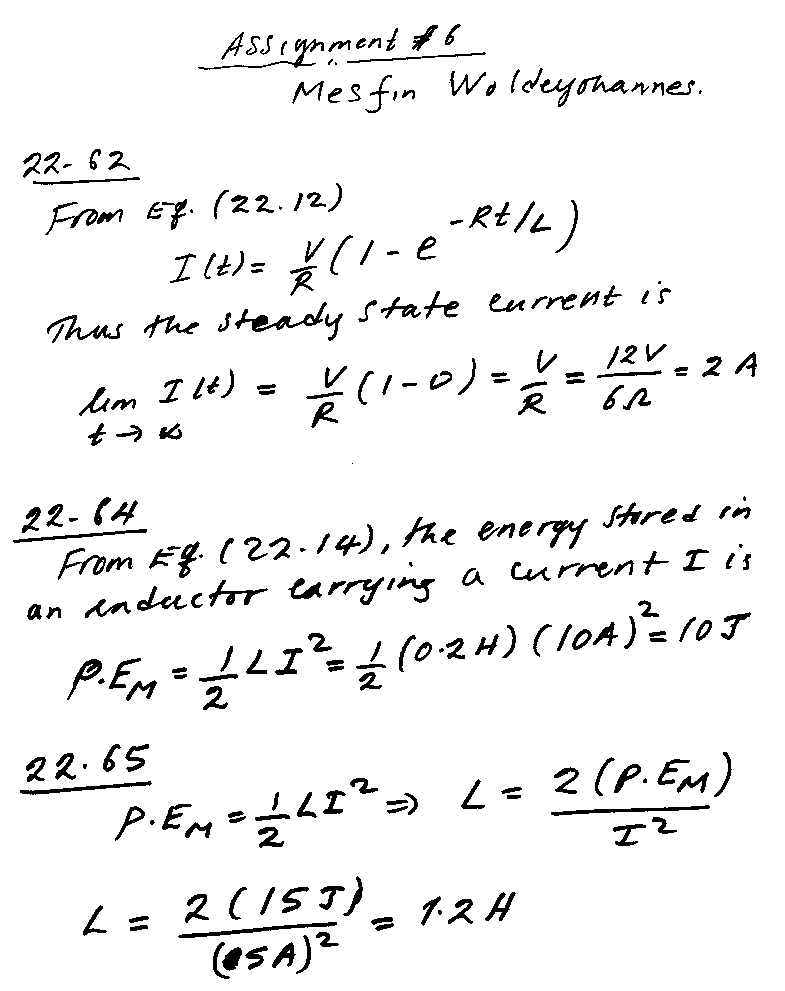 Assignment #6
Mesfin Woldeyohannes.
22-62
From Eq. (22.12)
I(t) = V/R (1 - e^(-Rt/L))
Thus the steady state current is
lim t→∞ I(t) = V/R (1-0) = V/R = 12V/6Ω = 2 A
22-64
From Eq. (22.14), the energy stored in
an inductor carrying a current I is
P.E_M = 1/2 LI² = 1/2 (0.2H) (10A)² = 10 J
22.65
P.E_M = 1/2 LI² ⇒ L = 2(P.E_M)/I²
L = 2(15J)/(5A)² = 1.2 H